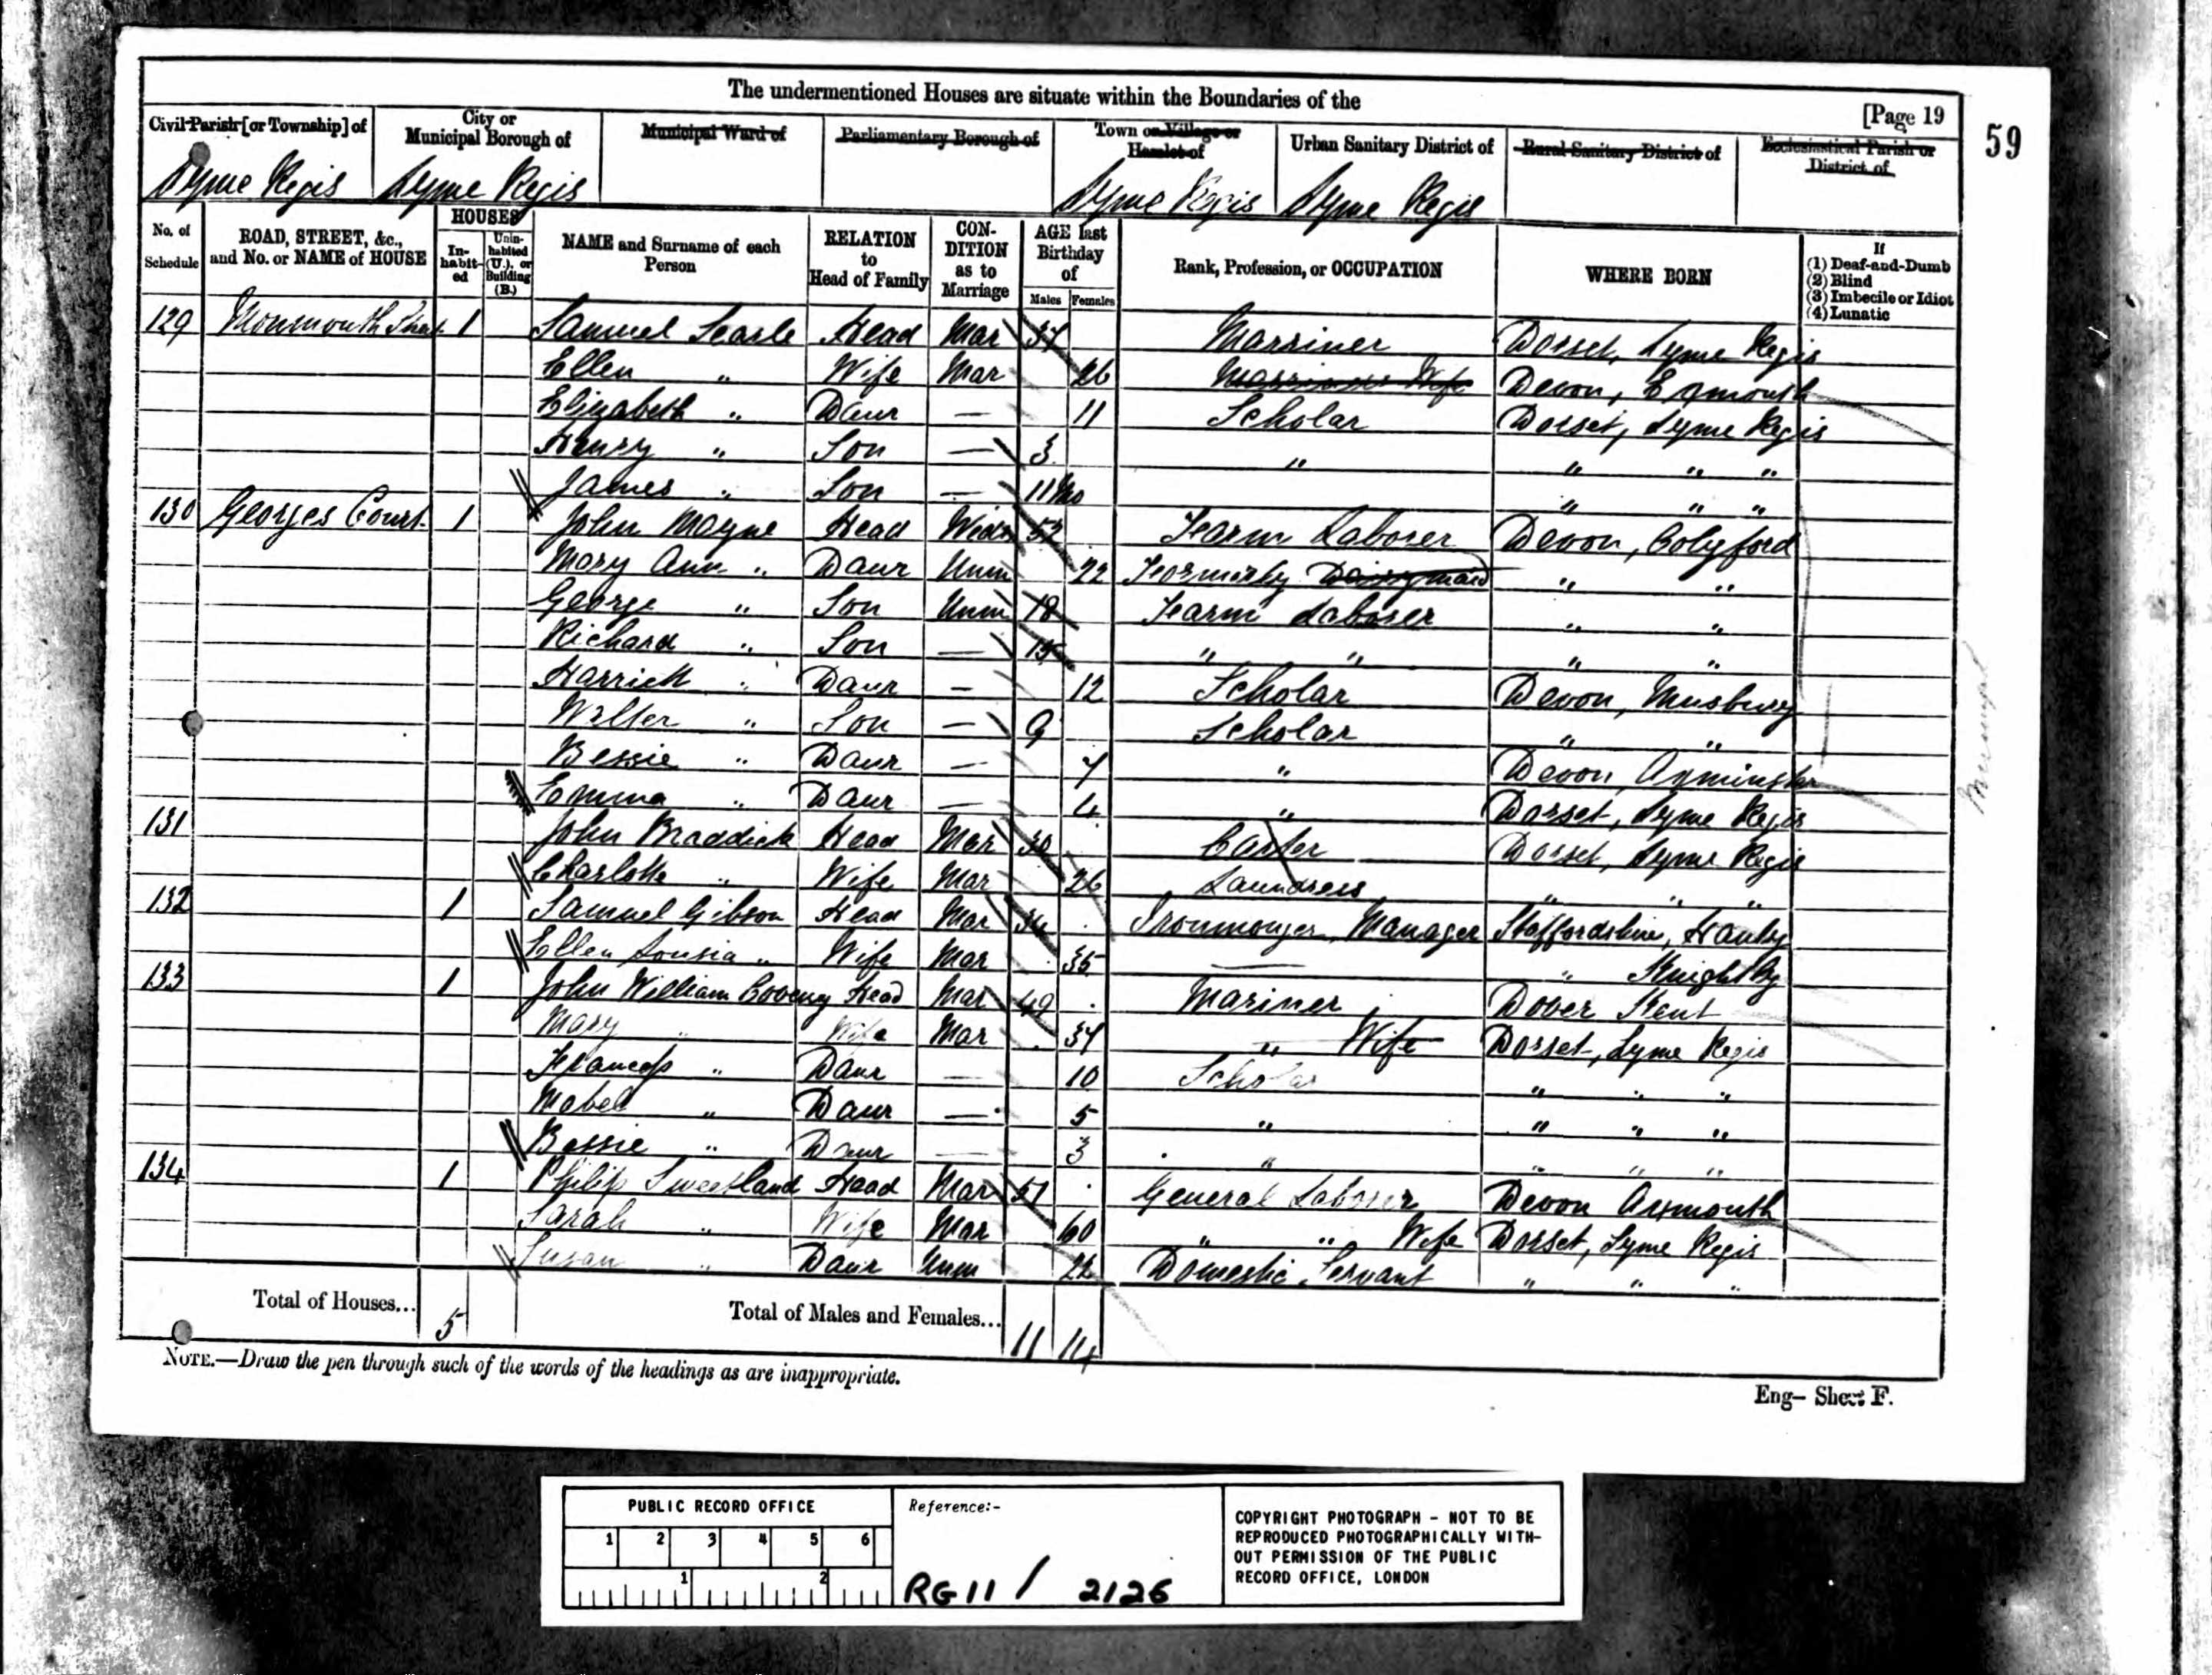 The undermentioned Houses are situate within the Boundaries of the
[Page 19
59
Civil Parish [or Township] of
City or Municipal Borough of
Municipal Ward of
Parliamentary Borough of
Town or Village or Hamlet of
Urban Sanitary District of
Rural Sanitary District of
Ecclesiastical Parish or District of
Lyme Regis Lyme Regis Lyme Regis Lyme Regis
No. of Schedule
ROAD, STREET, &c., and No. or NAME of HOUSE
HOUSES
In-habit-ed
Unin-habited (U.), or Building (B.)
NAME and Surname of each Person
RELATION to Head of Family
CON-DITION as to Marriage
AGE last Birthday of
Males Females
Rank, Profession, or OCCUPATION
WHERE BORN
If
(1) Deaf-and-Dumb
(2) Blind
(3) Imbecile or Idiot
(4) Lunatic
129 Monmouth Street 1 Samuel Searle Head Mar 37 Marriner Dorset, Lyme Regis
Ellen " Wife Mar 26 Marriners Wife Devon, Exmouth
Elizabeth " Daur — 11 Scholar Dorset, Lyme Regis
Henry " Son — 3 " " " "
James " Son — 11 Mo " " "
130 Georges Court 1 John Mayne Head Widr 52 Farm Laborer Devon, Colyford
Mary Ann " Daur Unm 22 Formerly Dairymaid " "
George " Son Unm 18 Farm Laborer " "
Richard " Son — 15 " " " "
Harriett " Daur — 12 Scholar Devon, Musbury
Walter " Son — 9 Scholar " "
Bessie " Daur — 7 " Devon, Axminster
Emma " Daur — 4 " Dorset, Lyme Regis
131 John Braddick Head Mar 30 Carter Dorset, Lyme Regis
Charlotte " Wife Mar 26 Laundress " " "
132 1 Samuel Gibson Head Mar 34 Ironmonger Manager Staffordshire, Hanley
Ellen Lousia " Wife Mar 35 — " Knightly
133 1 John William Coveny Head Mar 49 Mariner Dover Kent
Mary " Wife Mar 37 " Wife Dorset, Lyme Regis
Frances " Daur — 10 Scholar " " "
Mabel " Daur — 5 " " " "
Bessie " Daur — 3 " " " "
134 1 Philip Sweetland Head Mar 57 General Laborer Devon Axmouth
Sarah " Wife Mar 60 " " Wife Dorset, Lyme Regis
Susan " Daur Unm 22 Domestic Servant " " "
Total of Houses... 5
Total of Males and Females... 11 14
NOTE.—Draw the pen through such of the words of the headings as are inappropriate.
Eng— Sheet F.
PUBLIC RECORD OFFICE
1 2 3 4 5 6
1 2
Reference:-
RG 11 / 2126
COPYRIGHT PHOTOGRAPH - NOT TO BE
REPRODUCED PHOTOGRAPHICALLY WITH-
OUT PERMISSION OF THE PUBLIC
RECORD OFFICE, LONDON